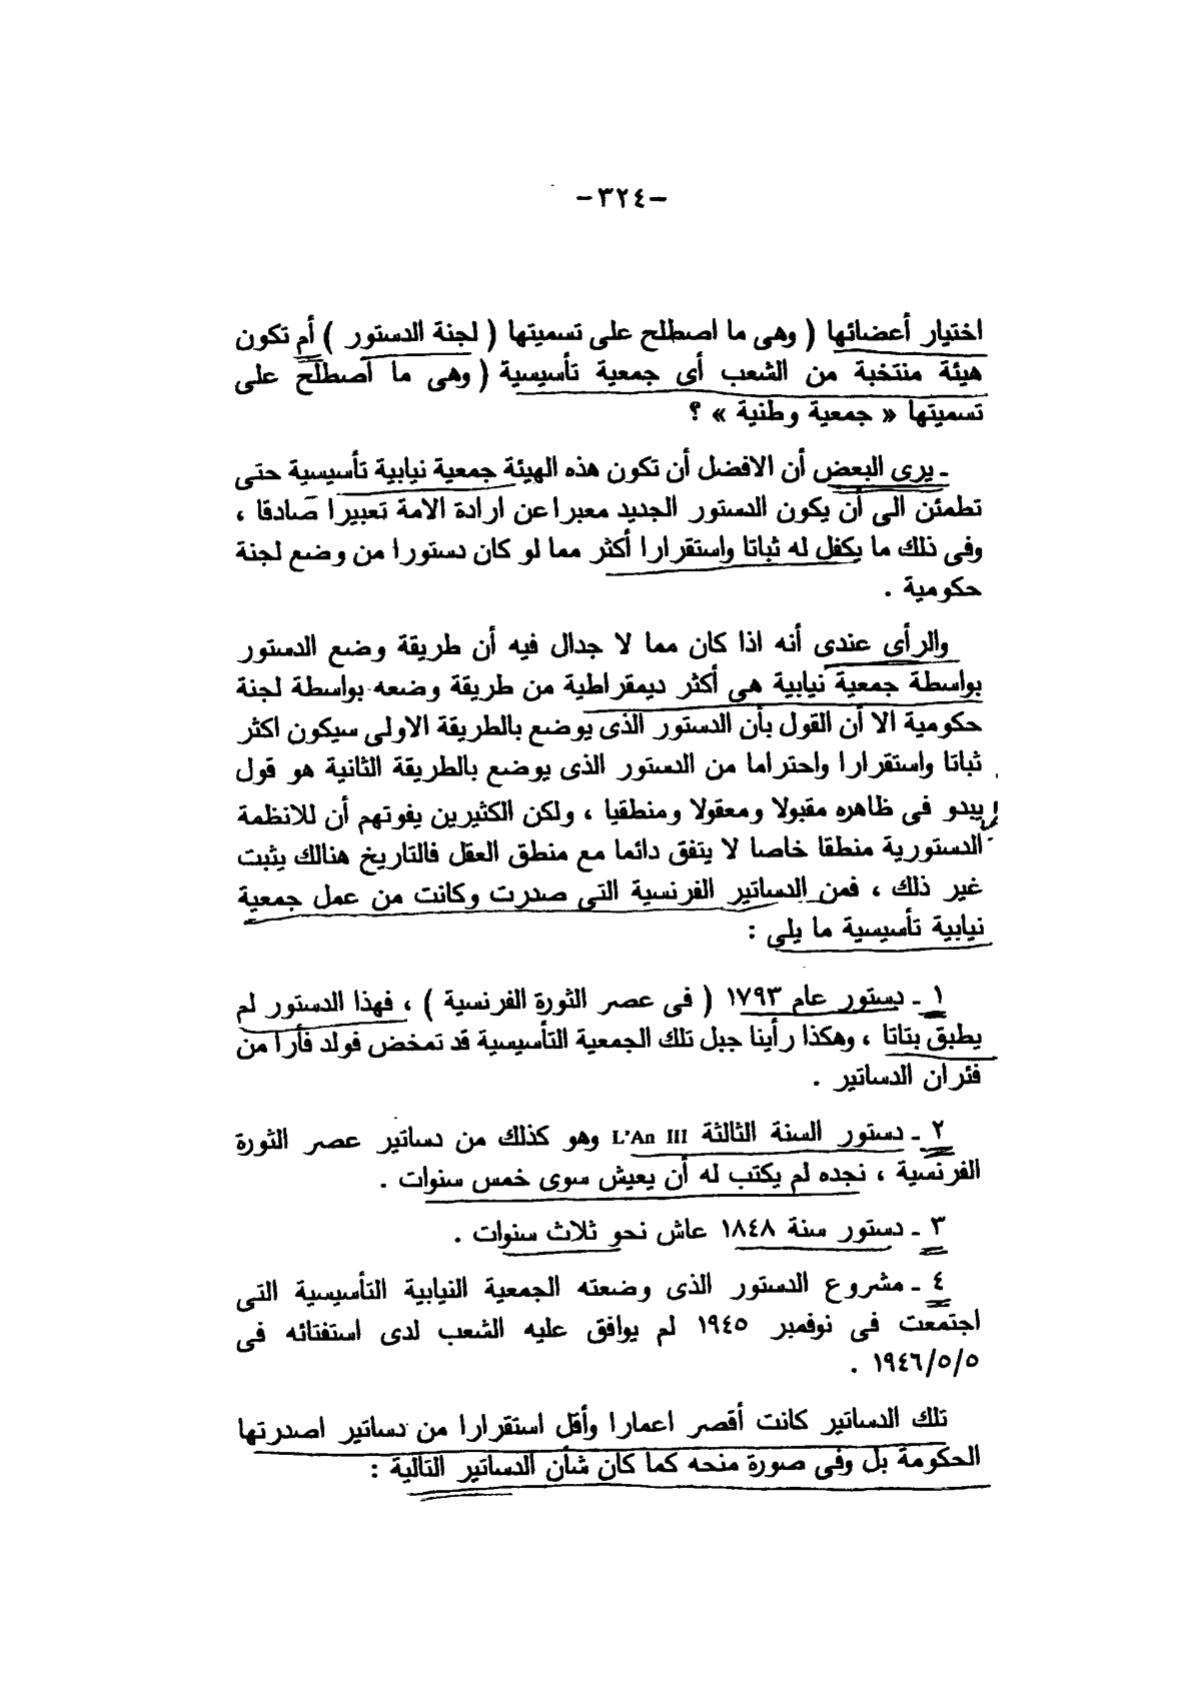 -٣٢٤-
اختيار أعضائها ( وهى ما اصطلح على تسميتها ( لجنة الدستور ) أم تكون
هيئة منتخبة من الشعب أى جمعية تأسيسية ( وهى ما اصطلح على
تسميتها « جمعية وطنية » ؟
ـ يرى البعض أن الافضل أن تكون هذه الهيئة جمعية نيابية تأسيسية حتى
تطمئن الى أن يكون الدستور الجديد معبرا عن ارادة الامة تعبيرا صادقا ،
وفى ذلك ما يكفل له ثباتا واستقرارا أكثر مما لو كان دستورا من وضع لجنة
حكومية .
والرأى عندى أنه اذا كان مما لا جدال فيه أن طريقة وضع الدستور
بواسطة جمعية نيابية هى أكثر ديمقراطية من طريقة وضعه بواسطة لجنة
حكومية الا أن القول بأن الدستور الذى يوضع بالطريقة الاولى سيكون اكثر
ثباتا واستقرارا واحتراما من الدستور الذى يوضع بالطريقة الثانية هو قول
يبدو فى ظاهره مقبولا ومعقولا ومنطقيا ، ولكن الكثيرين يفوتهم أن للانظمة
الدستورية منطقا خاصا لا يتفق دائما مع منطق العقل فالتاريخ هنالك يثبت
غير ذلك ، فمن الدساتير الفرنسية التى صدرت وكانت من عمل جمعية
نيابية تأسيسية ما يلى :
١ ـ دستور عام ١٧٩٣ ( فى عصر الثورة الفرنسية ) ، فهذا الدستور لم
يطبق بتاتا ، وهكذا رأينا جبل تلك الجمعية التأسيسية قد تمخض فولد فأرا من
فئران الدساتير .
٢ ـ دستور السنة الثالثة L'An III وهو كذلك من دساتير عصر الثورة
الفرنسية ، نجده لم يكتب له أن يعيش سوى خمس سنوات .
٣ ـ دستور سنة ١٨٤٨ عاش نحو ثلاث سنوات .
٤ ـ مشروع الدستور الذى وضعته الجمعية النيابية التأسيسية التى
اجتمعت فى نوفمبر ١٩٤٥ لم يوافق عليه الشعب لدى استفتائه فى
١٩٤٦/٥/٥ .
تلك الدساتير كانت أقصر اعمارا وأقل استقرارا من دساتير اصدرتها
الحكومة بل وفى صورة منحه كما كان شأن الدساتير التالية :